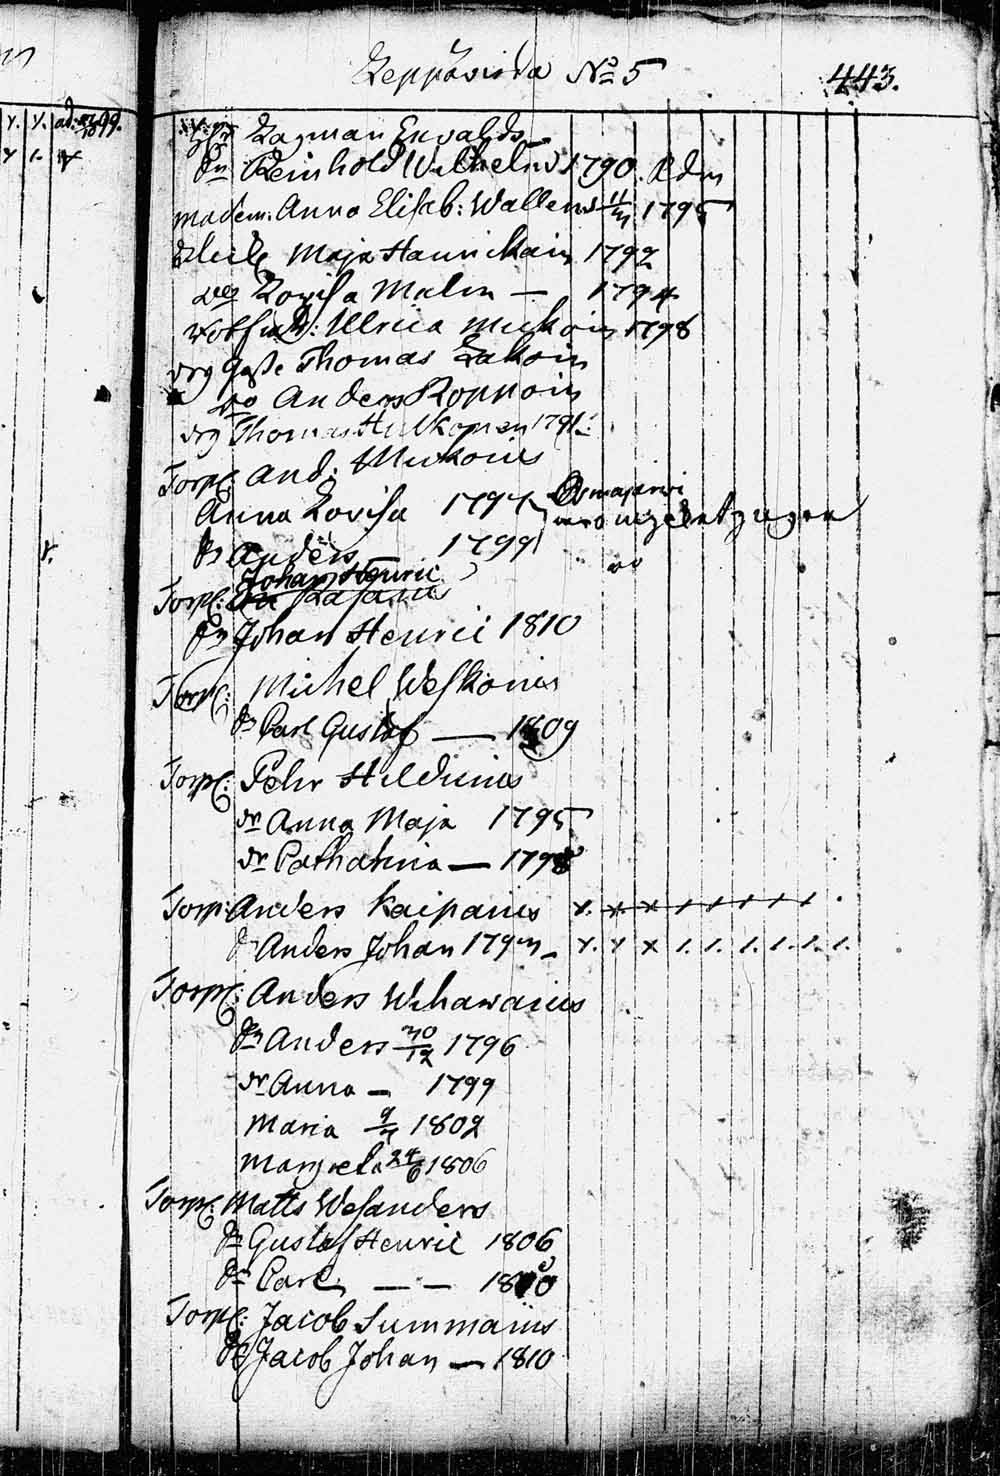 Leppäsida No 5 443.
Lagman Envalds
Sn Reinhold Wilhelm 1790. Rdm
madem: Anna Elisab: Wallens 11/11 1795
Maja Hannikain 1792
Lovisa Malin — 1794
Ulrica Muckoin 1798
drg Thomas Lakoin
do Anders Roppoin
drg Thomas Hulkonen 1791
Torp: And: Muckoins
Anna Lovisa 1797
Sn Anders — 1799 do
Johan Henric
Torp:
Sn Johan Henric 1810
Torp: Michel Weskonis
Sn Carl Gustaf — 1809
Torp: Pehr Hildunis
dr Anna Maja 1795
dr Catharina — 1798
Torp: Anders Kaipanis x. x x / / / / / .
Sn Anders Johan 1797 — x. x x 1. 1. 1. 1. 1. 1.
Torp: Anders Wihawainis
Sn Anders 30/12 1796
dr Anna — 1799
Maria 9/7 1802
Margreta 24/6 1806
Torp: Matts Wesanders
Sn Gustaf Henric 1806
Sn Carl — — 1810
Torp: Jacob Summanis
Sn Jacob Johan — 1810